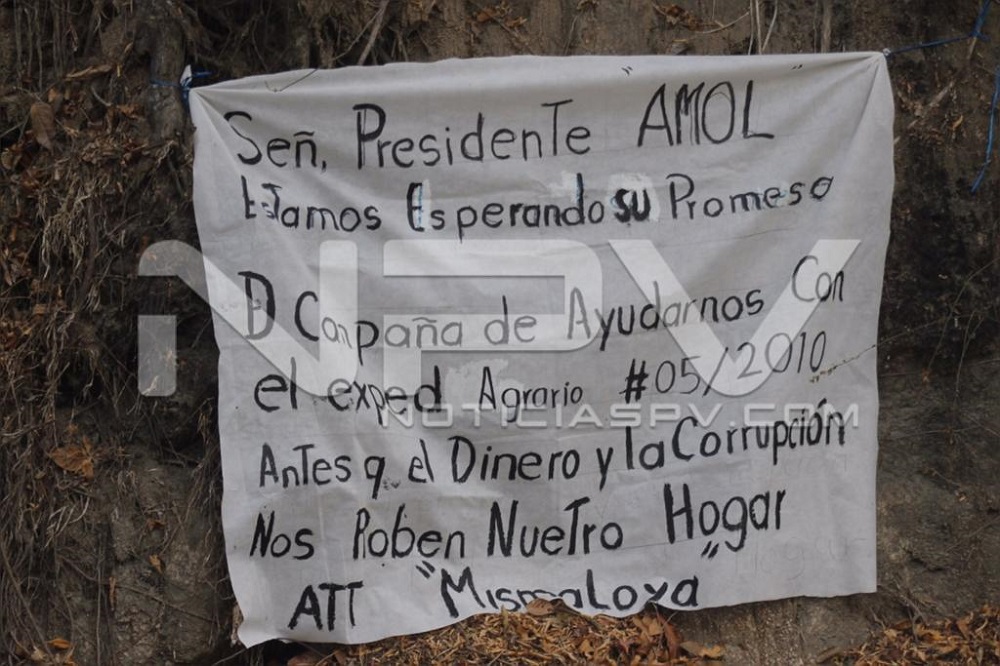 Señ, Presidente AMOL
Estamos Esperando su Promesa
D Canpaña de Ayudarnos Con
el exped Agrario #05/2010
Antes q. el Dinero y la Corrupción
Nos Roben Nuetro Hogar
ATT "Mismaloya"
NPV
NOTICIASPV.COM